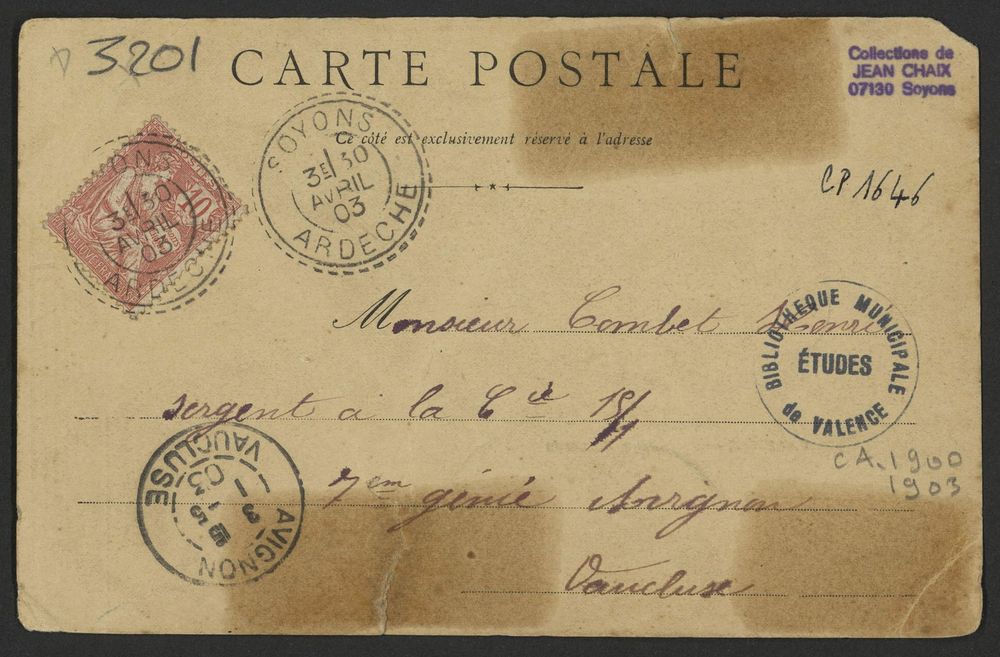 3201
CARTE POSTALE
Collections de
JEAN CHAIX
07130 Soyons
Ce côté est exclusivement réservé à l'adresse
SOYONS
3E/30
AVRIL
03
ARDÈCHE
ONS
3E/30
AVRIL
03
ARDÈCHE
10
CP 1646
Monsieur Combet Henri
BIBLIOTHEQUE MUNICIPALE
ÉTUDES
de VALENCE
sergent a la Cie
CA. 1900
1903
7em génie Avignon
Vaucluse
AVIGNON
VAUCLUSE
03